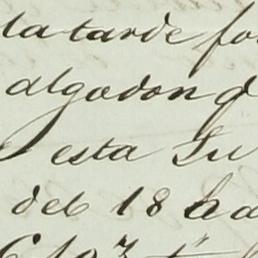 la tarde fo
algodon q
esta Su
del 18 ha